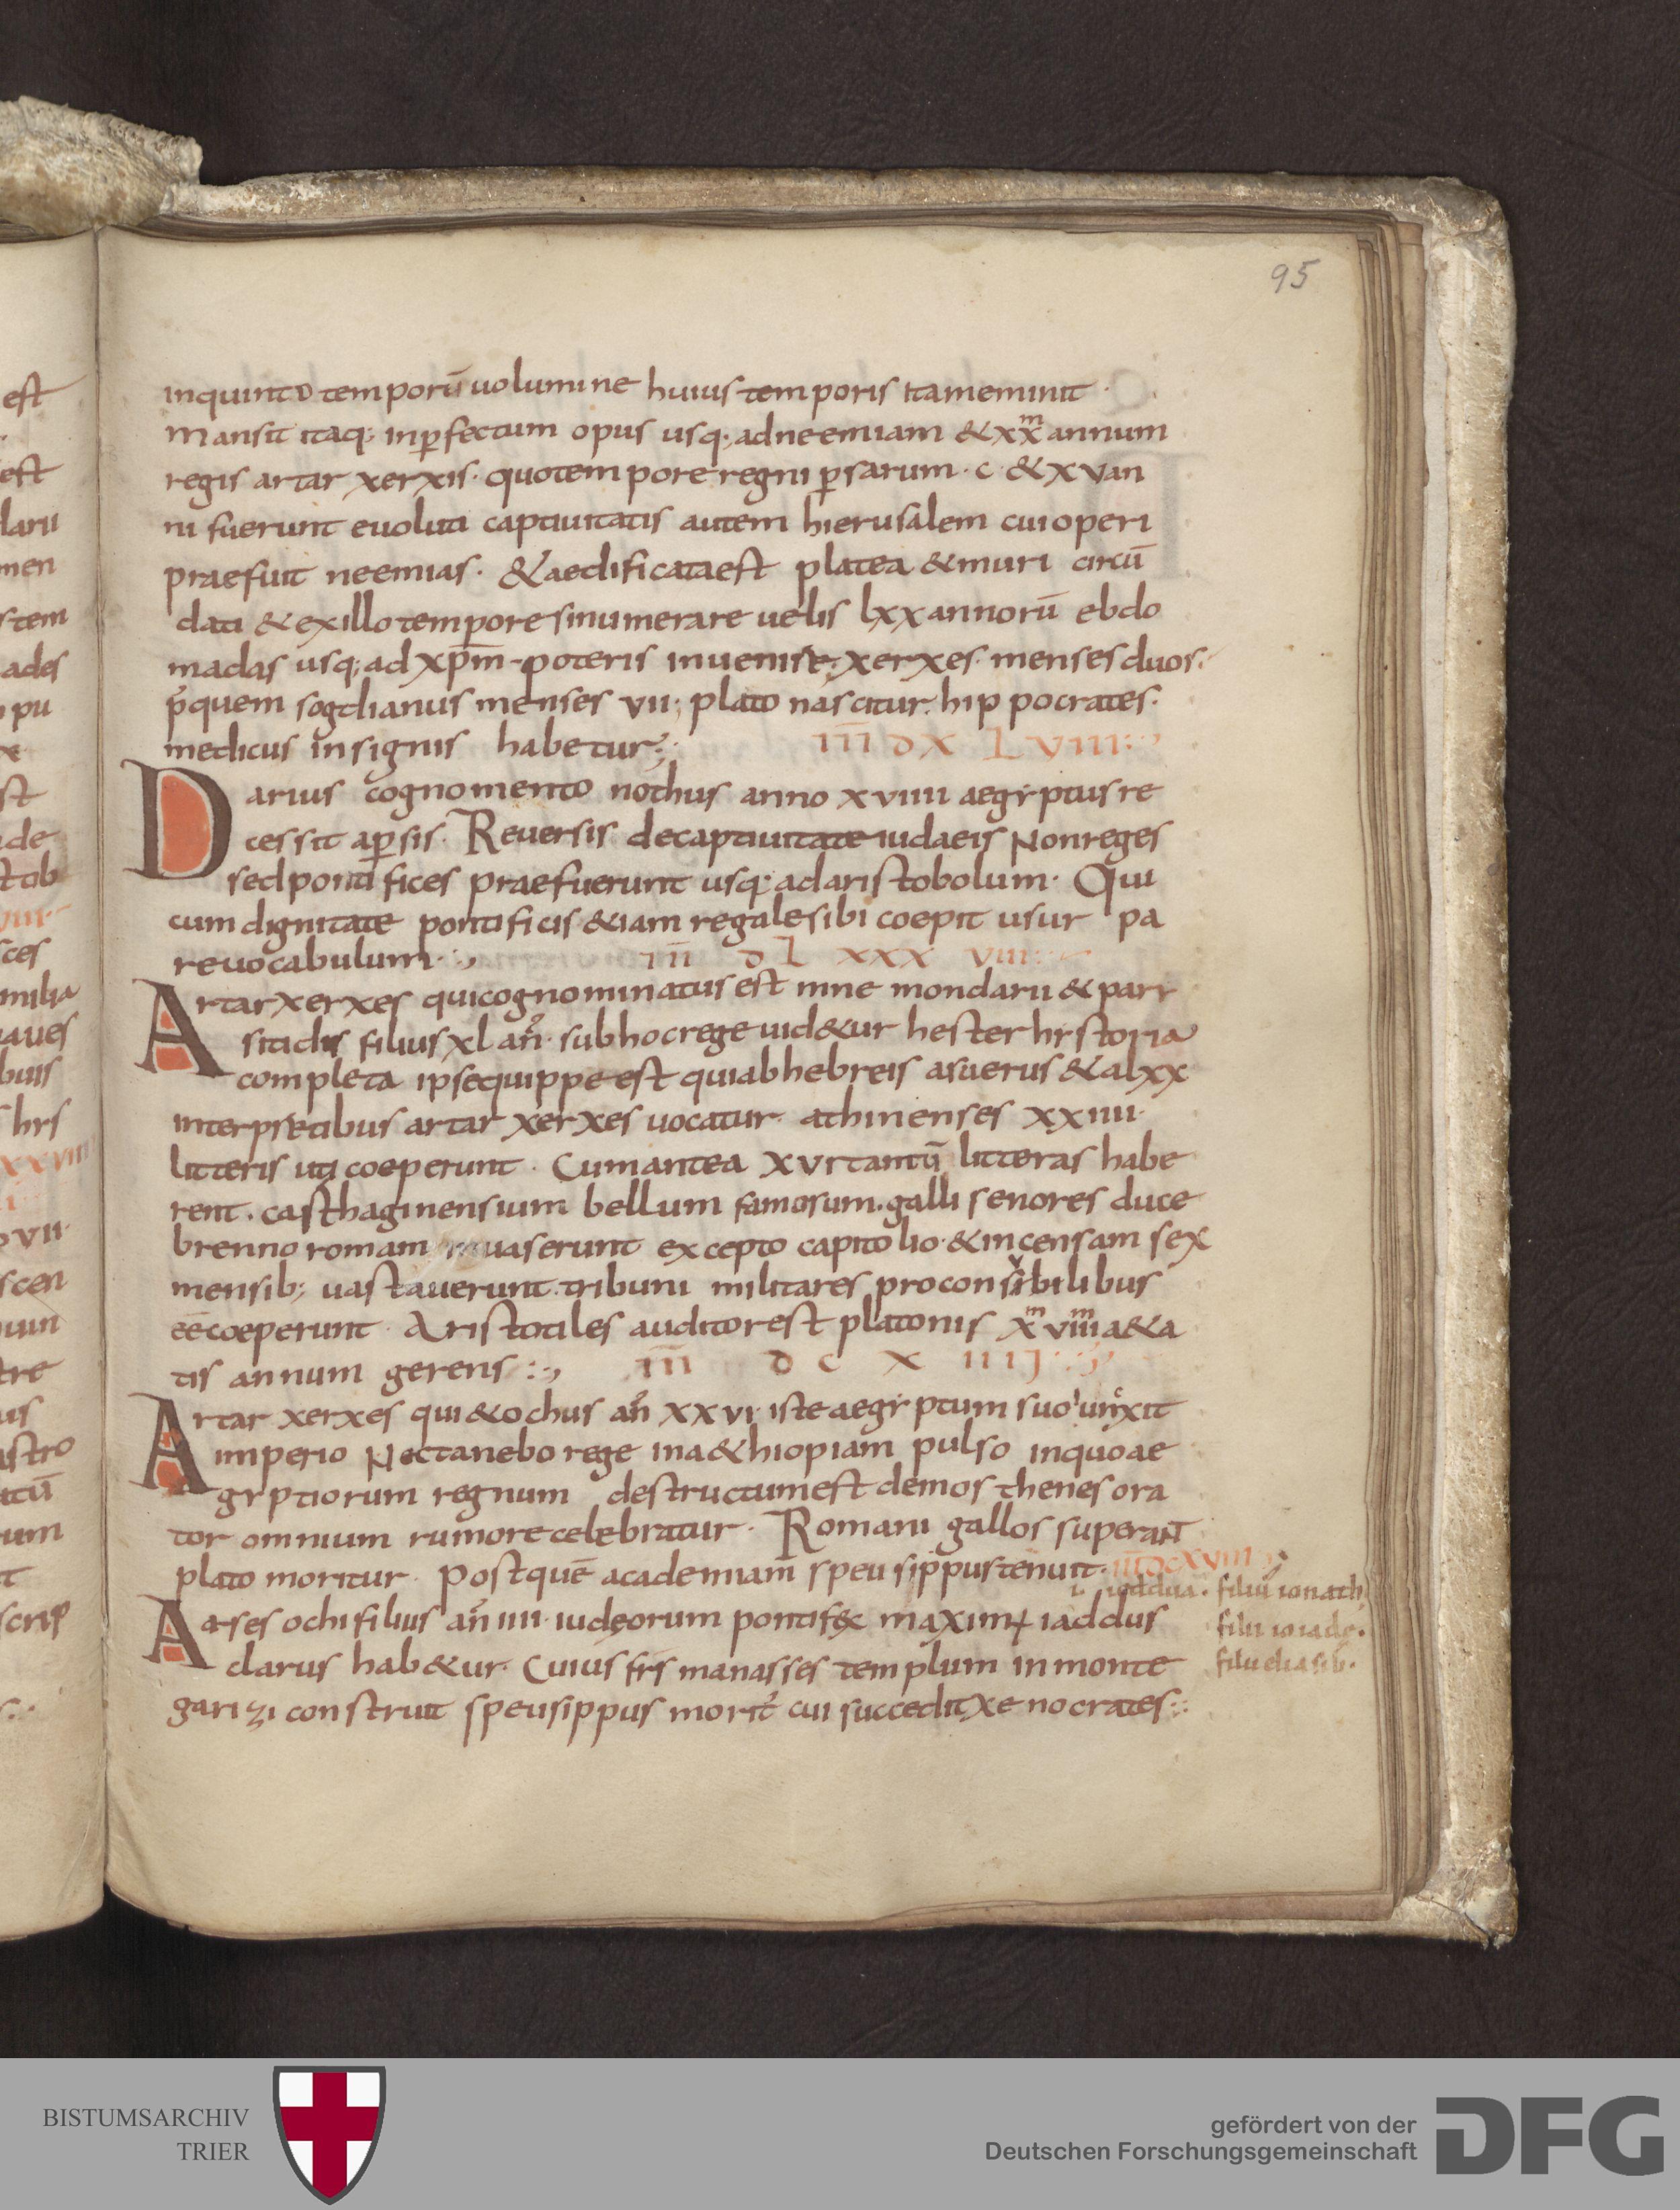 95
inquinto temporū uolumine huius temporis itameminit ·
Mansit itaq; inꝑfectum opus usq; adneemiam &xxᵐ annum
regis artar xerxis · quotempore regni ꝑsarum · c · &xvan
ni fuerunt euoluti captiuitatis autem hierusalem cuioperi
praefuit neemias · &aedificataest platea &muri circū
dati &exillotempore sinumerare uelis lxxannorū ebdo
madas usq; ad xp̄m poteris inuenire; xerxes · menses duos ·
p̓quem sogdianus menses vii · plato nascitur · hippocrates ·
medicus insignis habetur; iii d x l viii
Darius cognomento nothus anno xviiii aegyptus re
cessit aꝑsis · Reuersis decaptiuitate iudaeis Nonreges
sedpontifices praefuerunt usq; adaristobolum · Qui
cum dignitate pontificis &iam regalesibi coepit usur pa
reuocabulum · iii d l xxx viii
Artarxerxes quicognominatusest mne mondarii & parr
sitidis filius xl an̄ · subhocrege uid&ur hester hystoria
completa ipsequippeest quiabhebreis asuerus &alxx
interpretibus artar xerxes uocatur · athinenses xxiiii ·
litteris uti coeperunt · Cumantea xvitantū litteras habe
rent · casthaginensium bellum famosum · galli senores duce
brenno romam inuaserunt excepto capitolio · &incensam sex
mensib; uastauerunt · tribuni militares proconsibilibus
eēcoeperunt · Aristotiles auditorest platonis xᵐviiiᵐ a&a
tis annum gerens iii d c x iiii
Artar xerxes qui &ochus an̄ xxvi · iste aegyptum suo iunxit
imperio Nectanebo rege ina&hiopiam pulso inquoae
gyptiorum regnum destructumest demosthenes ora
tor omnium rumore celebratur · Romani gallos superant
plato moritur · Postquē academiam speusippustenuit · iiidcxviii
iaddua · filiu ionath
Aarses ochi filius an̄ iiii · iudęorum pontifex maxim; iaddus
filii ioiade ·
clarus hab&ur · Cuius frs manasses templum inmonte
filii eliasib ·
garizi construit speusippus morit̓ cui succedit xenocrates
BISTUMSARCHIV
TRIER
gefördert von der
Deutschen Forschungsgemeinschaft
DFG